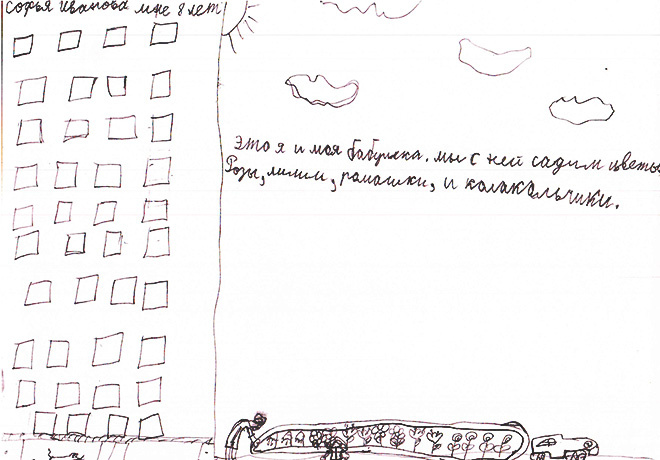 Софья Иванова мне 8 лет
Это я и моя бабушка. мы с ней садим цветы
Розы, лилии, ромашки, и колакальчики.